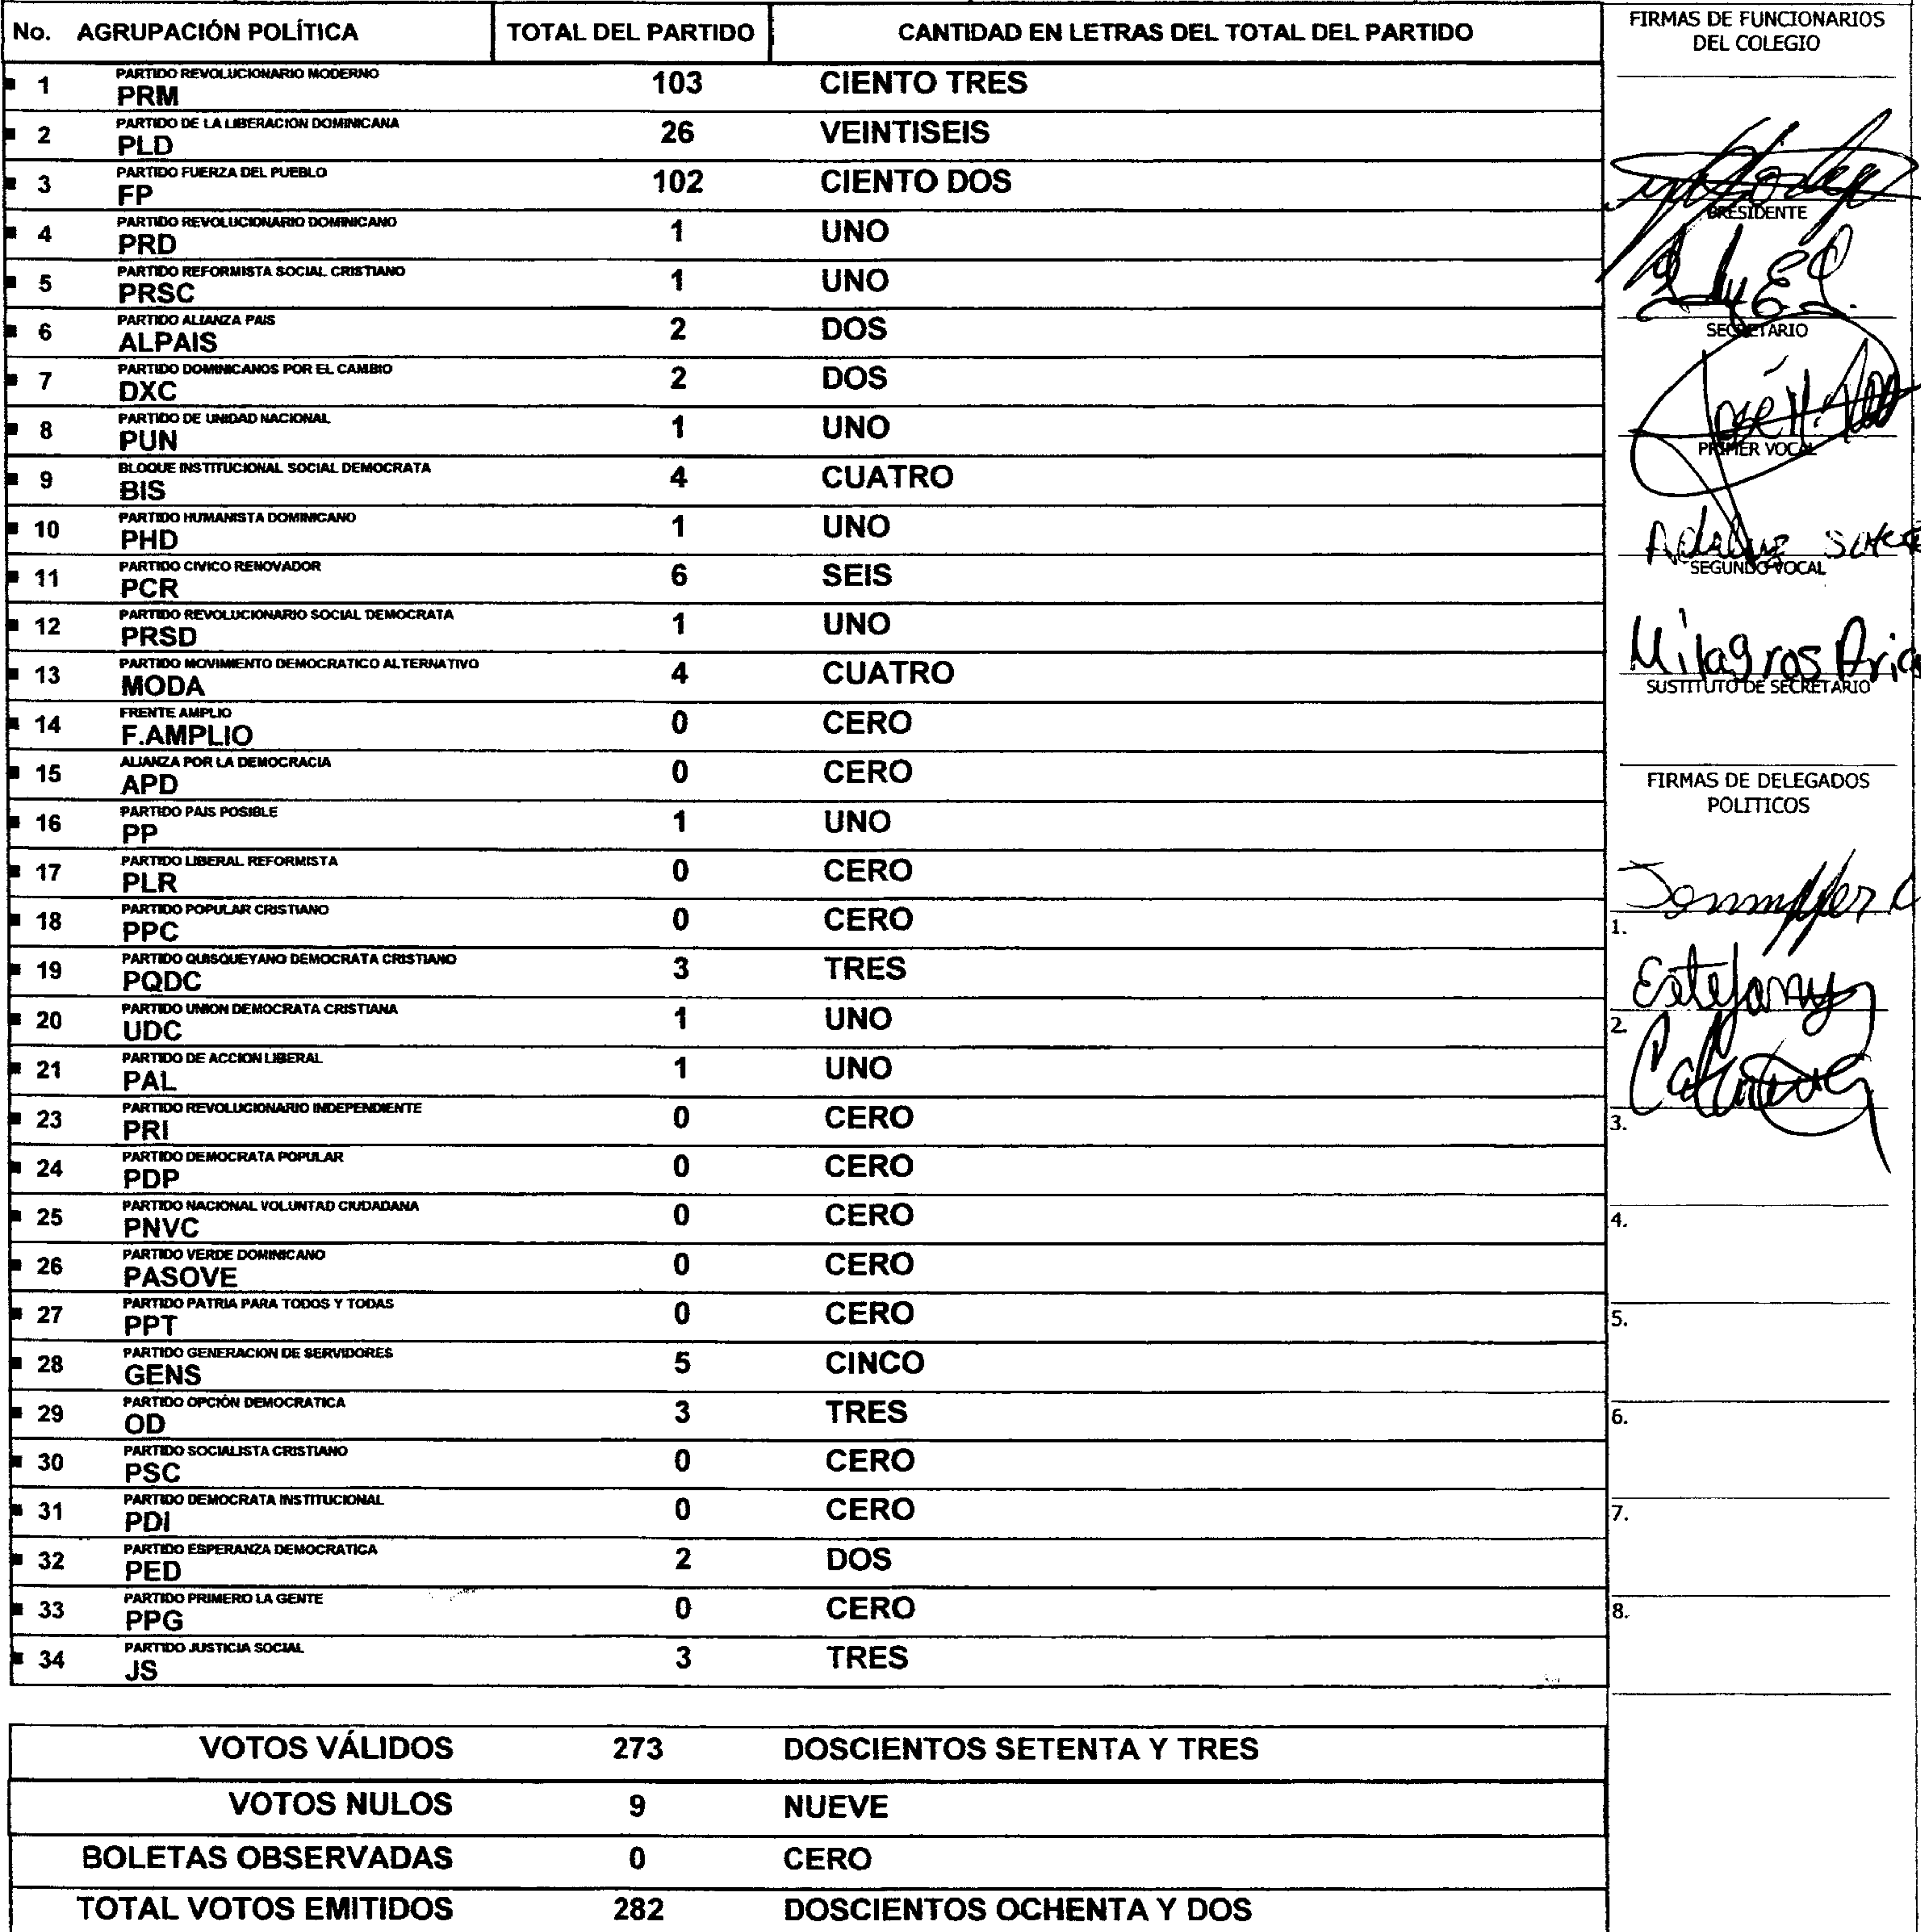 No. AGRUPACIÓN POLÍTICA TOTAL DEL PARTIDO CANTIDAD EN LETRAS DEL TOTAL DEL PARTIDO
PARTIDO REVOLUCIONARIO MODERNO
1 PRM 103 CIENTO TRES
PARTIDO DE LA LIBERACION DOMINICANA
2 PLD 26 VEINTISEIS
PARTIDO FUERZA DEL PUEBLO
3 FP 102 CIENTO DOS
PARTIDO REVOLUCIONARIO DOMINICANO
4 PRD 1 UNO
PARTIDO REFORMISTA SOCIAL CRISTIANO
5 PRSC 1 UNO
PARTIDO ALIANZA PAIS
6 ALPAIS 2 DOS
PARTIDO DOMINICANOS POR EL CAMBIO
7 DXC 2 DOS
PARTIDO DE UNIDAD NACIONAL
8 PUN 1 UNO
BLOQUE INSTITUCIONAL SOCIAL DEMOCRATA
9 BIS 4 CUATRO
PARTIDO HUMANISTA DOMINICANO
10 PHD 1 UNO
PARTIDO CIVICO RENOVADOR
11 PCR 6 SEIS
PARTIDO REVOLUCIONARIO SOCIAL DEMOCRATA
12 PRSD 1 UNO
PARTIDO MOVIMIENTO DEMOCRATICO ALTERNATIVO
13 MODA 4 CUATRO
FRENTE AMPLIO
14 F.AMPLIO 0 CERO
ALIANZA POR LA DEMOCRACIA
15 APD 0 CERO
PARTIDO PAIS POSIBLE
16 PP 1 UNO
PARTIDO LIBERAL REFORMISTA
17 PLR 0 CERO
PARTIDO POPULAR CRISTIANO
18 PPC 0 CERO
PARTIDO QUISQUEYANO DEMOCRATA CRISTIANO
19 PQDC 3 TRES
PARTIDO UNION DEMOCRATA CRISTIANA
20 UDC 1 UNO
PARTIDO DE ACCION LIBERAL
21 PAL 1 UNO
PARTIDO REVOLUCIONARIO INDEPENDIENTE
23 PRI 0 CERO
PARTIDO DEMOCRATA POPULAR
24 PDP 0 CERO
PARTIDO NACIONAL VOLUNTAD CIUDADANA
25 PNVC 0 CERO
PARTIDO VERDE DOMINICANO
26 PASOVE 0 CERO
PARTIDO PATRIA PARA TODOS Y TODAS
27 PPT 0 CERO
PARTIDO GENERACION DE SERVIDORES
28 GENS 5 CINCO
PARTIDO OPCIÓN DEMOCRATICA
29 OD 3 TRES
PARTIDO SOCIALISTA CRISTIANO
30 PSC 0 CERO
PARTIDO DEMOCRATA INSTITUCIONAL
31 PDI 0 CERO
PARTIDO ESPERANZA DEMOCRATICA
32 PED 2 DOS
PARTIDO PRIMERO LA GENTE
33 PPG 0 CERO
PARTIDO JUSTICIA SOCIAL
34 JS 3 TRES
VOTOS VÁLIDOS 273 DOSCIENTOS SETENTA Y TRES
VOTOS NULOS 9 NUEVE
BOLETAS OBSERVADAS 0 CERO
TOTAL VOTOS EMITIDOS 282 DOSCIENTOS OCHENTA Y DOS
FIRMAS DE FUNCIONARIOS
DEL COLEGIO
PRESIDENTE
SECRETARIO
PRIMER VOCAL
SEGUNDO VOCAL
Milagros
SUSTITUTO DE SECRETARIO
FIRMAS DE DELEGADOS
POLITICOS
1.
Estefany
2.
3.
4.
5.
6.
7.
8.